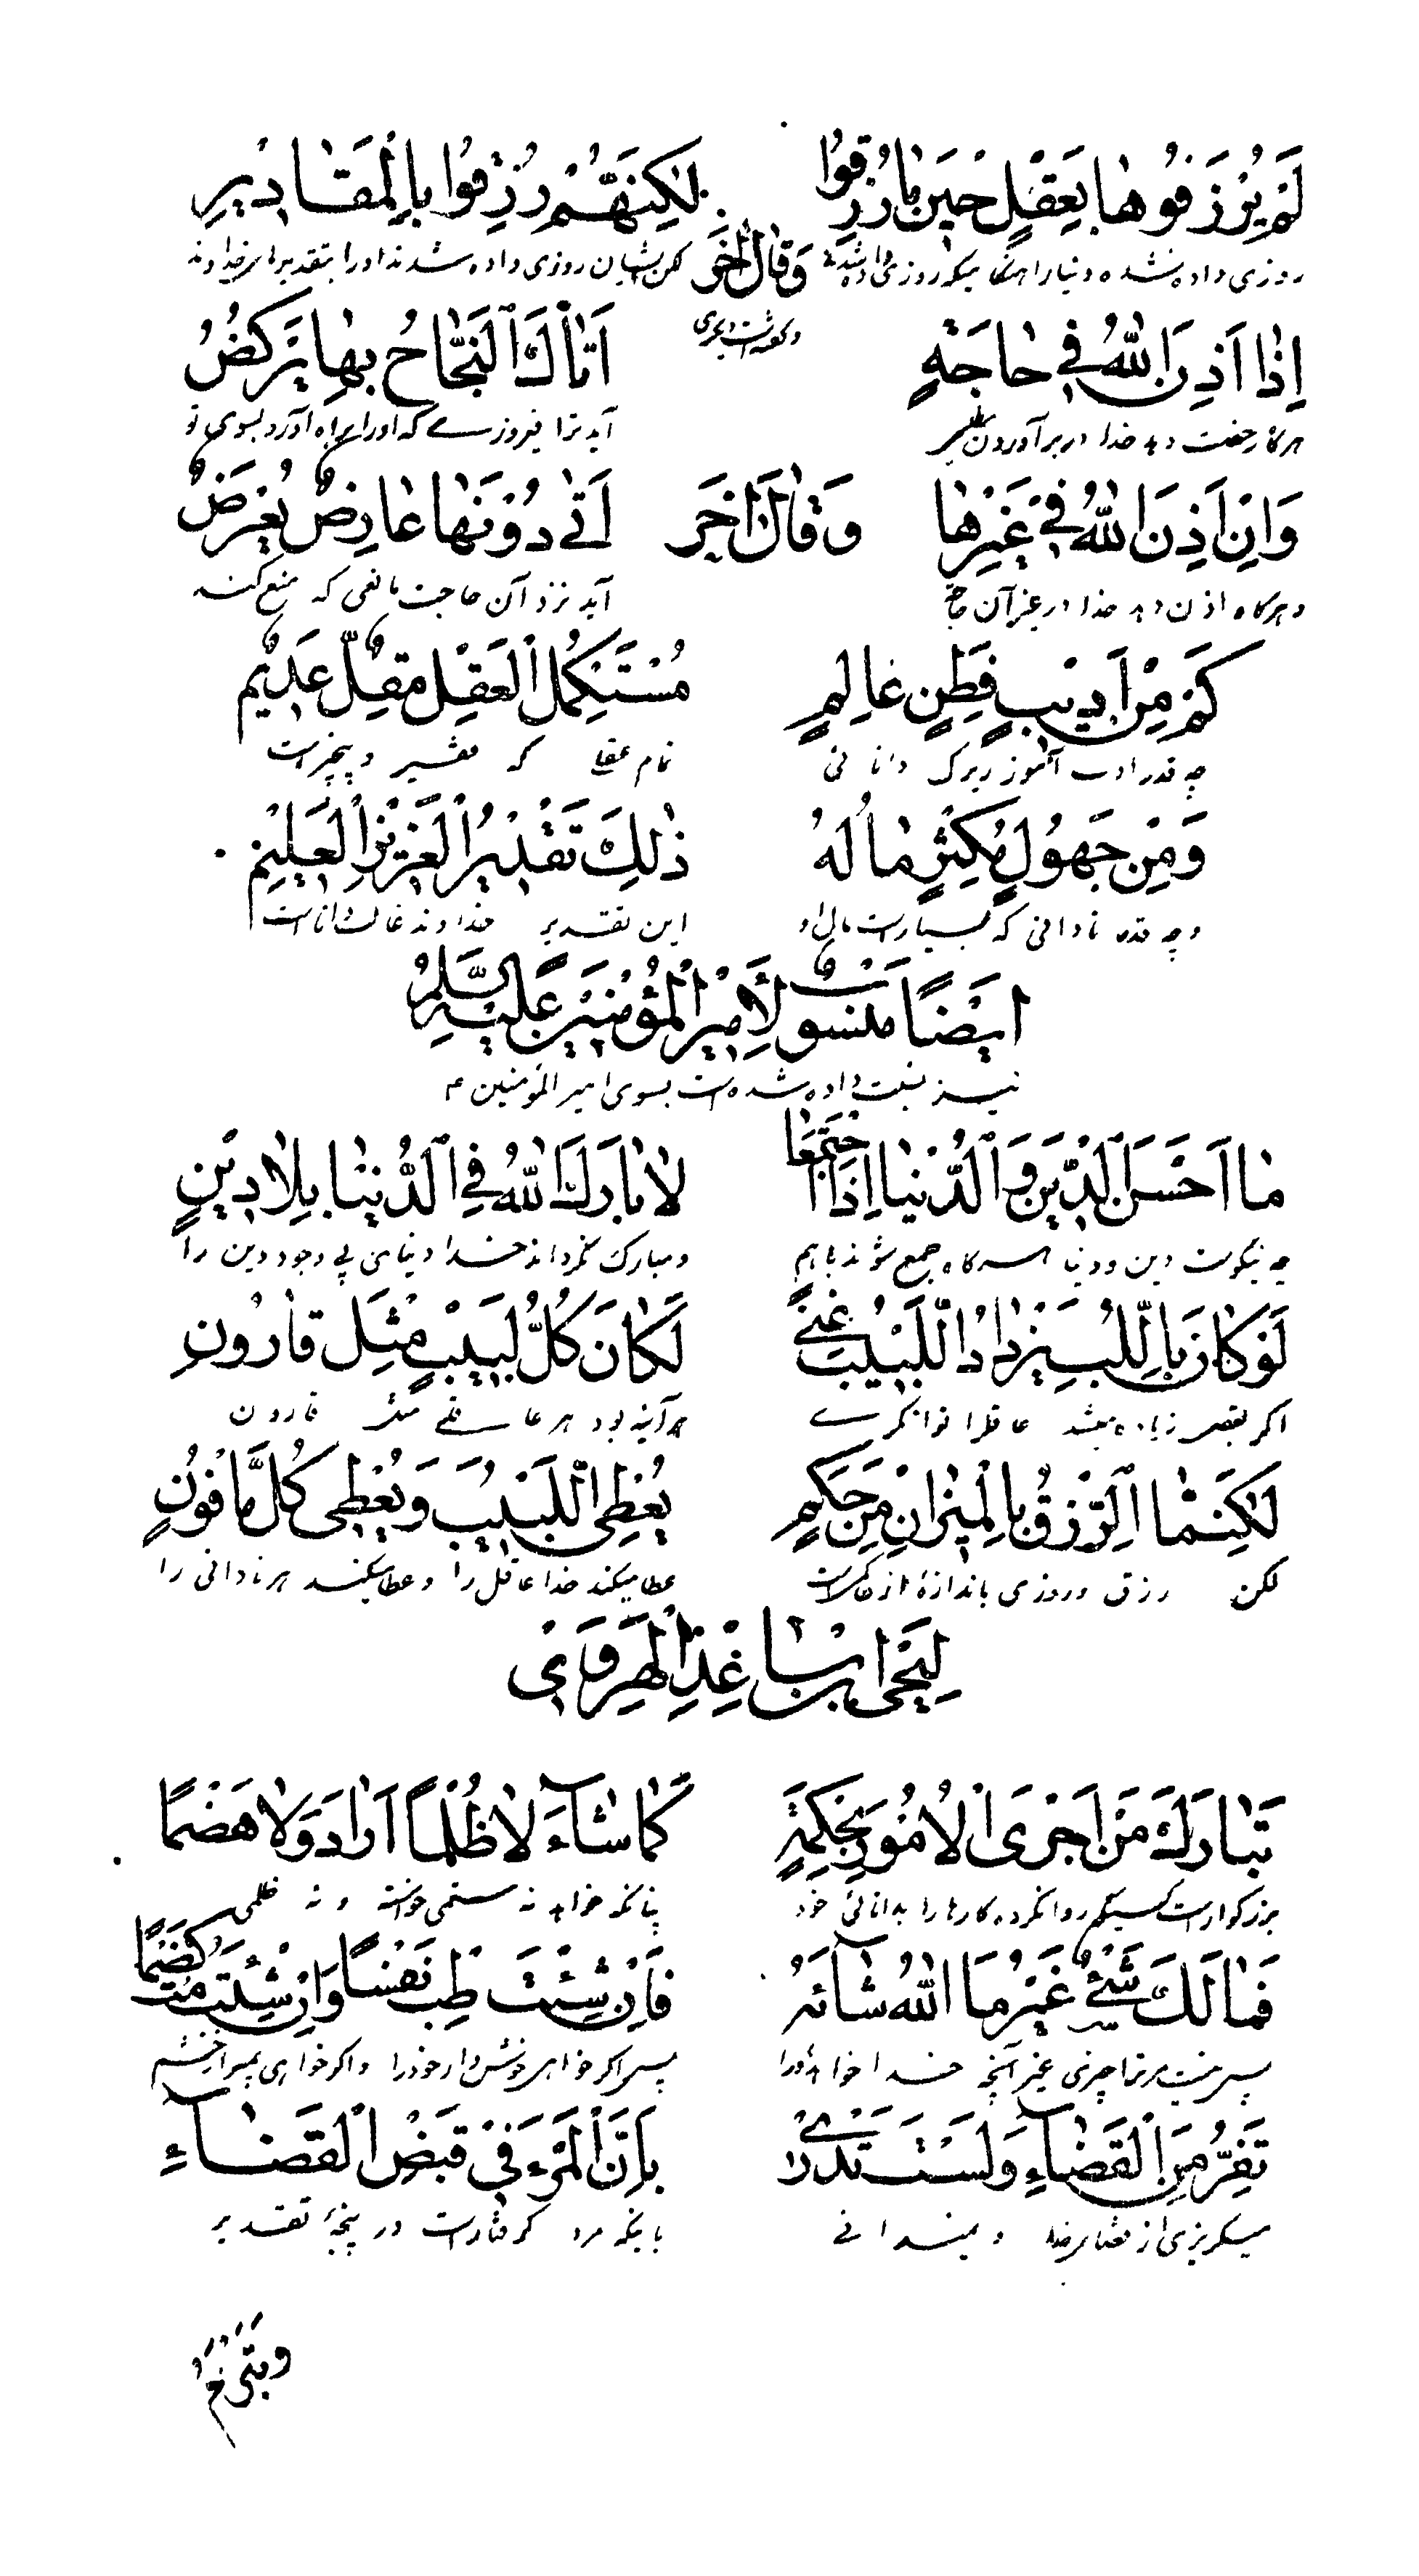 لَمْ يُرْزَقُوهَا بِعَقْلٍ حِينَ مَا رُزِقُوا لٰكِنَّهُمْ رُزِقُوا بِالْمَقَادِيرِ
روزی داده نشده دنیا را هنگامیکه روزی داده شدند وَقَالَ اٰخَر لکن ایشان روزی داده شدند او را بتقدیر خداوند
اِذَا اَذِنَ اللّٰهُ فِي حَاجَةٍ اَتَاكَ النَّجَاحُ بِهَا يَرْكُضُ
هرگاه رخصت دهد خدا در برآوردن آید ترا فیروزی که او را براه آورد بسوی تو
وَاِنْ اَذِنَ اللّٰهُ فِي غَيْرِهَا وَقَالَ اٰخَر اَتٰى دُونَهَا عَارِضٌ يُعْرِضُ
و هرگاه اذن دهد خدا در غیر آن حاجة آید نزد آن حاجت مانعی که منع کند
كَمْ مِنْ اَدِيبٍ فَطِنٍ عَالِمٍ مُسْتَكْمِلِ الْعَقْلِ مُقِلٌّ عَدِيمٌ
چه قدر ادب آموز زیرک دانائی تمام عقل که مفلس و بیچیز است
وَمِنْ جَهُولٍ مُكْثِرٍ مَالُهُ ذٰلِكَ تَقْدِيرُ الْعَزِيزِ الْعَلِيمِ
و چه قدر نادانی که بسیار است مال او این تقدیر خداوند غالب دانا است
اَيْضًا مَنْسُوبٌ لِاَمِيرِ الْمُؤْمِنِينَ عَلَيْهِ السَّلَامُ
نیز نسبت داده شده است بسوی امیر المؤمنین ع
مَا اَحْسَنَ الدِّينَ وَالدُّنْيَا اِذَا اجْتَمَعَا لَا بَارَكَ اللّٰهُ فِي الدُّنْيَا بِلَا دِينٍ
چه نیکوست دین و دنیا هرگاه جمع شوند باهم و مبارک نگرداند خدا دنیای بی وجود دین را
لَوْ كَانَ بِاللُّبِّ يَزْدَادُ اللَّبِيبُ غِنًى لَكَانَ كُلُّ لَبِيبٍ مِثْلَ قَارُونِ
اگر بعقل زیاده میشد عاقل را توانگری هر آینه بود هر عاقلی مثل قارون
لٰكِنَّمَا الرِّزْقُ بِالْمِيزَانِ مِنْ حَكَمٍ يُعْطِي اللَّبِيبَ وَيُعْطِي كُلَّ مَأْفُونٍ
لکن رزق و روزی باندازۀ از حاکم است عطا میکند خدا عاقل را و عطا میکند هر نادانی را
لِيَحْيَى ابْنِ صَاعِدِ الْهَرَوِيّ
تَبَارَكَ مَنْ اَجْرَى الْاُمُورَ بِحِكْمَةٍ كَمَا شَاءَ لَا ظُلْمًا اَرَادَ وَلَا هَضْمًا
بزرگوار است کسیکه روان کرده کارها را بدانائی خود چنانکه خواهد نه ستمی خواسته و نه ظلمی
فَمَا لَكَ شَيْءٌ غَيْرُ مَا اللّٰهُ شَاءَهُ فَاِنْ شِئْتَ طِبْ نَفْسًا وَاِنْ شِئْتَ مُتْ كَضْمًا
پس نیست مر ترا چیزی غیر آنچه خدا خواهد او را پس اگر خواهی خوش دار خود را و اگر خواهی بمیر از خشم
تَفِرُّ مِنَ الْقَضَاءِ وَلَسْتَ تَدْرِي بِاَنَّ الْمَرْءَ فِي قَبْضِ الْقَضَاءِ
میگریزی از قضای خدا و نمیدانی باینکه مرد گرفتار است در پنجۀ تقدیر